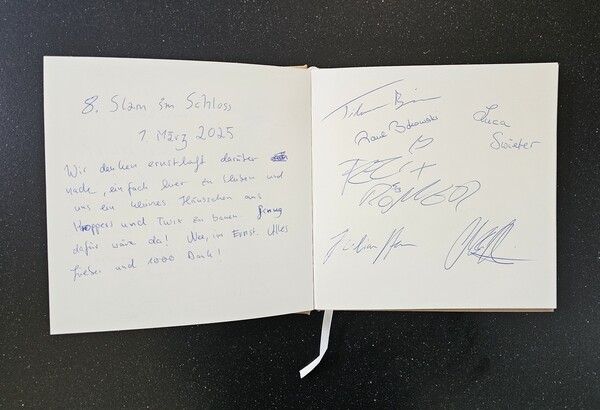 8. Slam im Schloss
1. März 2025
Wir denken ernsthaft darüber
nach, einfach hier zu bleiben und
uns ein kleines Häuschen aus
Knoppers und Twix zu bauen. Genug
dafür wäre da! Nee, im Ernst. Alles
Liebe und 1000 Dank!
Luca
Swieter
FELIX
RÖMER